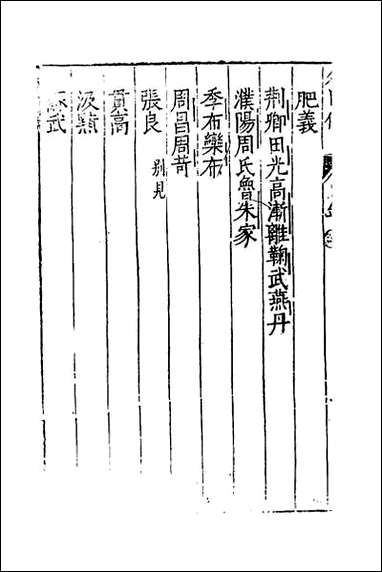 肥義
荆卿田光高漸離鞠武燕丹
濮陽周氏魯朱家
季布欒布
周昌周苛
張良 別見
貫高
汲黯
武